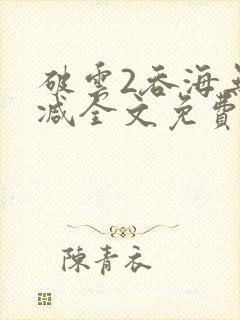 破雲2吞海無
减全文免費
陳青衣